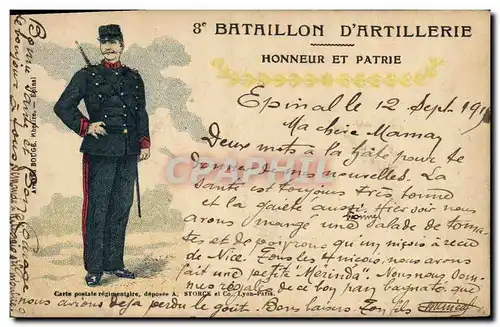 8e BATAILLON D'ARTILLERIE
HONNEUR ET PATRIE
Epinal le 12 Sept. 191
Ma chère Maman
Deux mots à la hâte pour te
donner de mes nouvelles. La
santé est toujours très bonne
et la gaieté aussi. Hier soir nous
avons mangé une bonne salade de toma-
tes et de poivrons qu'un niçois a reçu
de Nice. Tous les 4 niçois, nous avons
fait une petite "Merinda". Nous nous som-
mes régalés de ce bon pan bagnato que
nous avions déjà perdu le goût. Bons baisers Ton fils
Carte postale régimentaire, déposée A. STORCK et Co., Lyon-Paris.
CPA-PRISM.COM
Bonne santé et bon courage